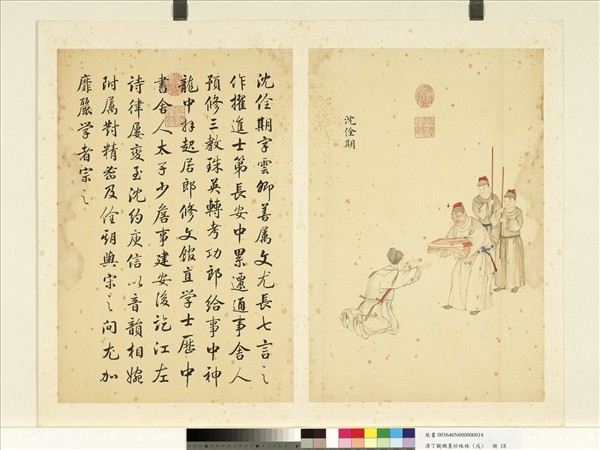 沈佺期
沈佺期字雲卿善属文尤長七言之
作擢進士第長安中累遷通事舍人
預修三教珠英轉考功郎給事中神
龍中拜起居郎修文館直学士歷中
書舍人太子少詹事建安後訖江左
詩律屡变至沈約庾信以音韻相婉
附属對精密及佺期與宋之问尤加
靡麗学者宗之
故畫 003646N000000018
清丁觀鵬墨妙珠林（戌） 冊 18